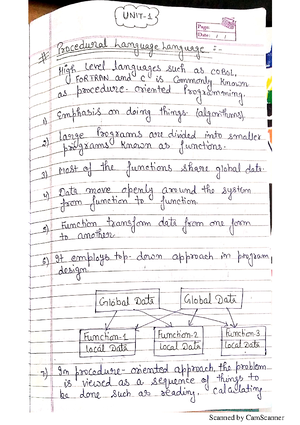 UNIT-1
Page:
Date: / /
# Procedural Language Language :-
High Level languages such as COBOL,
FORTRAN and C is Commonly Known
as procedure-oriented programming
1) Emphasis on doing things (algorithms)
2) Large Programs are divided into smaller
programs Known as functions.
3) Most of the functions share global data
4) Data move openly around the system
from function to function
5) Function transform data from one form
to another.
6) It employs top-down approach in program
design
Global Data Global Data
Function-1 Function-2 Function-3
Local Data Local Data Local Data
7) In procedure-oriented approach the problem
is viewed as a sequence of things to
be done such as reading, calculating
Scanned by CamScanner